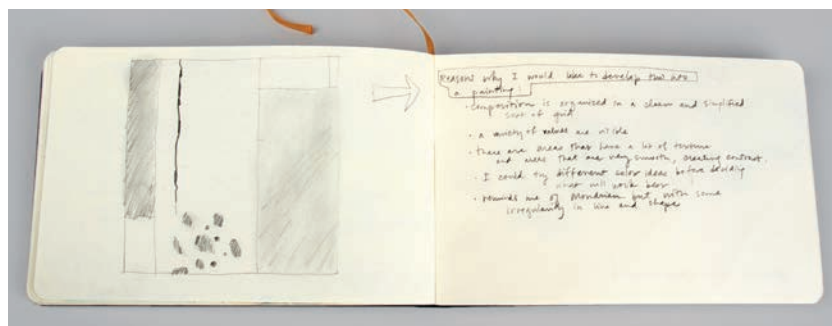 Reasons why I would like to develop this into
a painting:
· composition is organized in a clean and simplified
sort of grid
· a variety of values are visible
· there are areas that have a lot of texture
and areas that are very smooth, creating contrast.
· I could try different color ideas before deciding
what will work best
· reminds me of Mondrian but with some
irregularity in line and shape